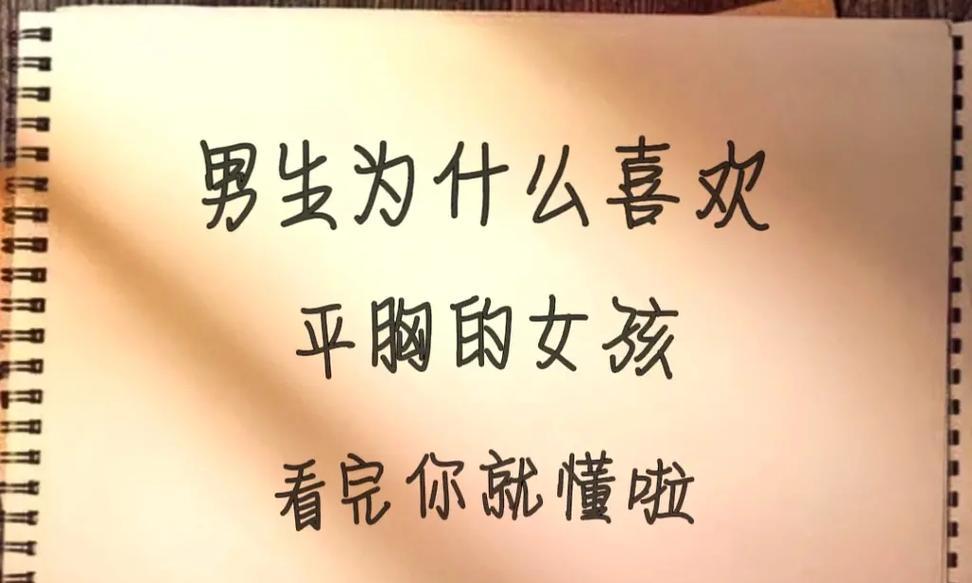 男生为什么喜欢
平胸的女孩
看完你就懂啦